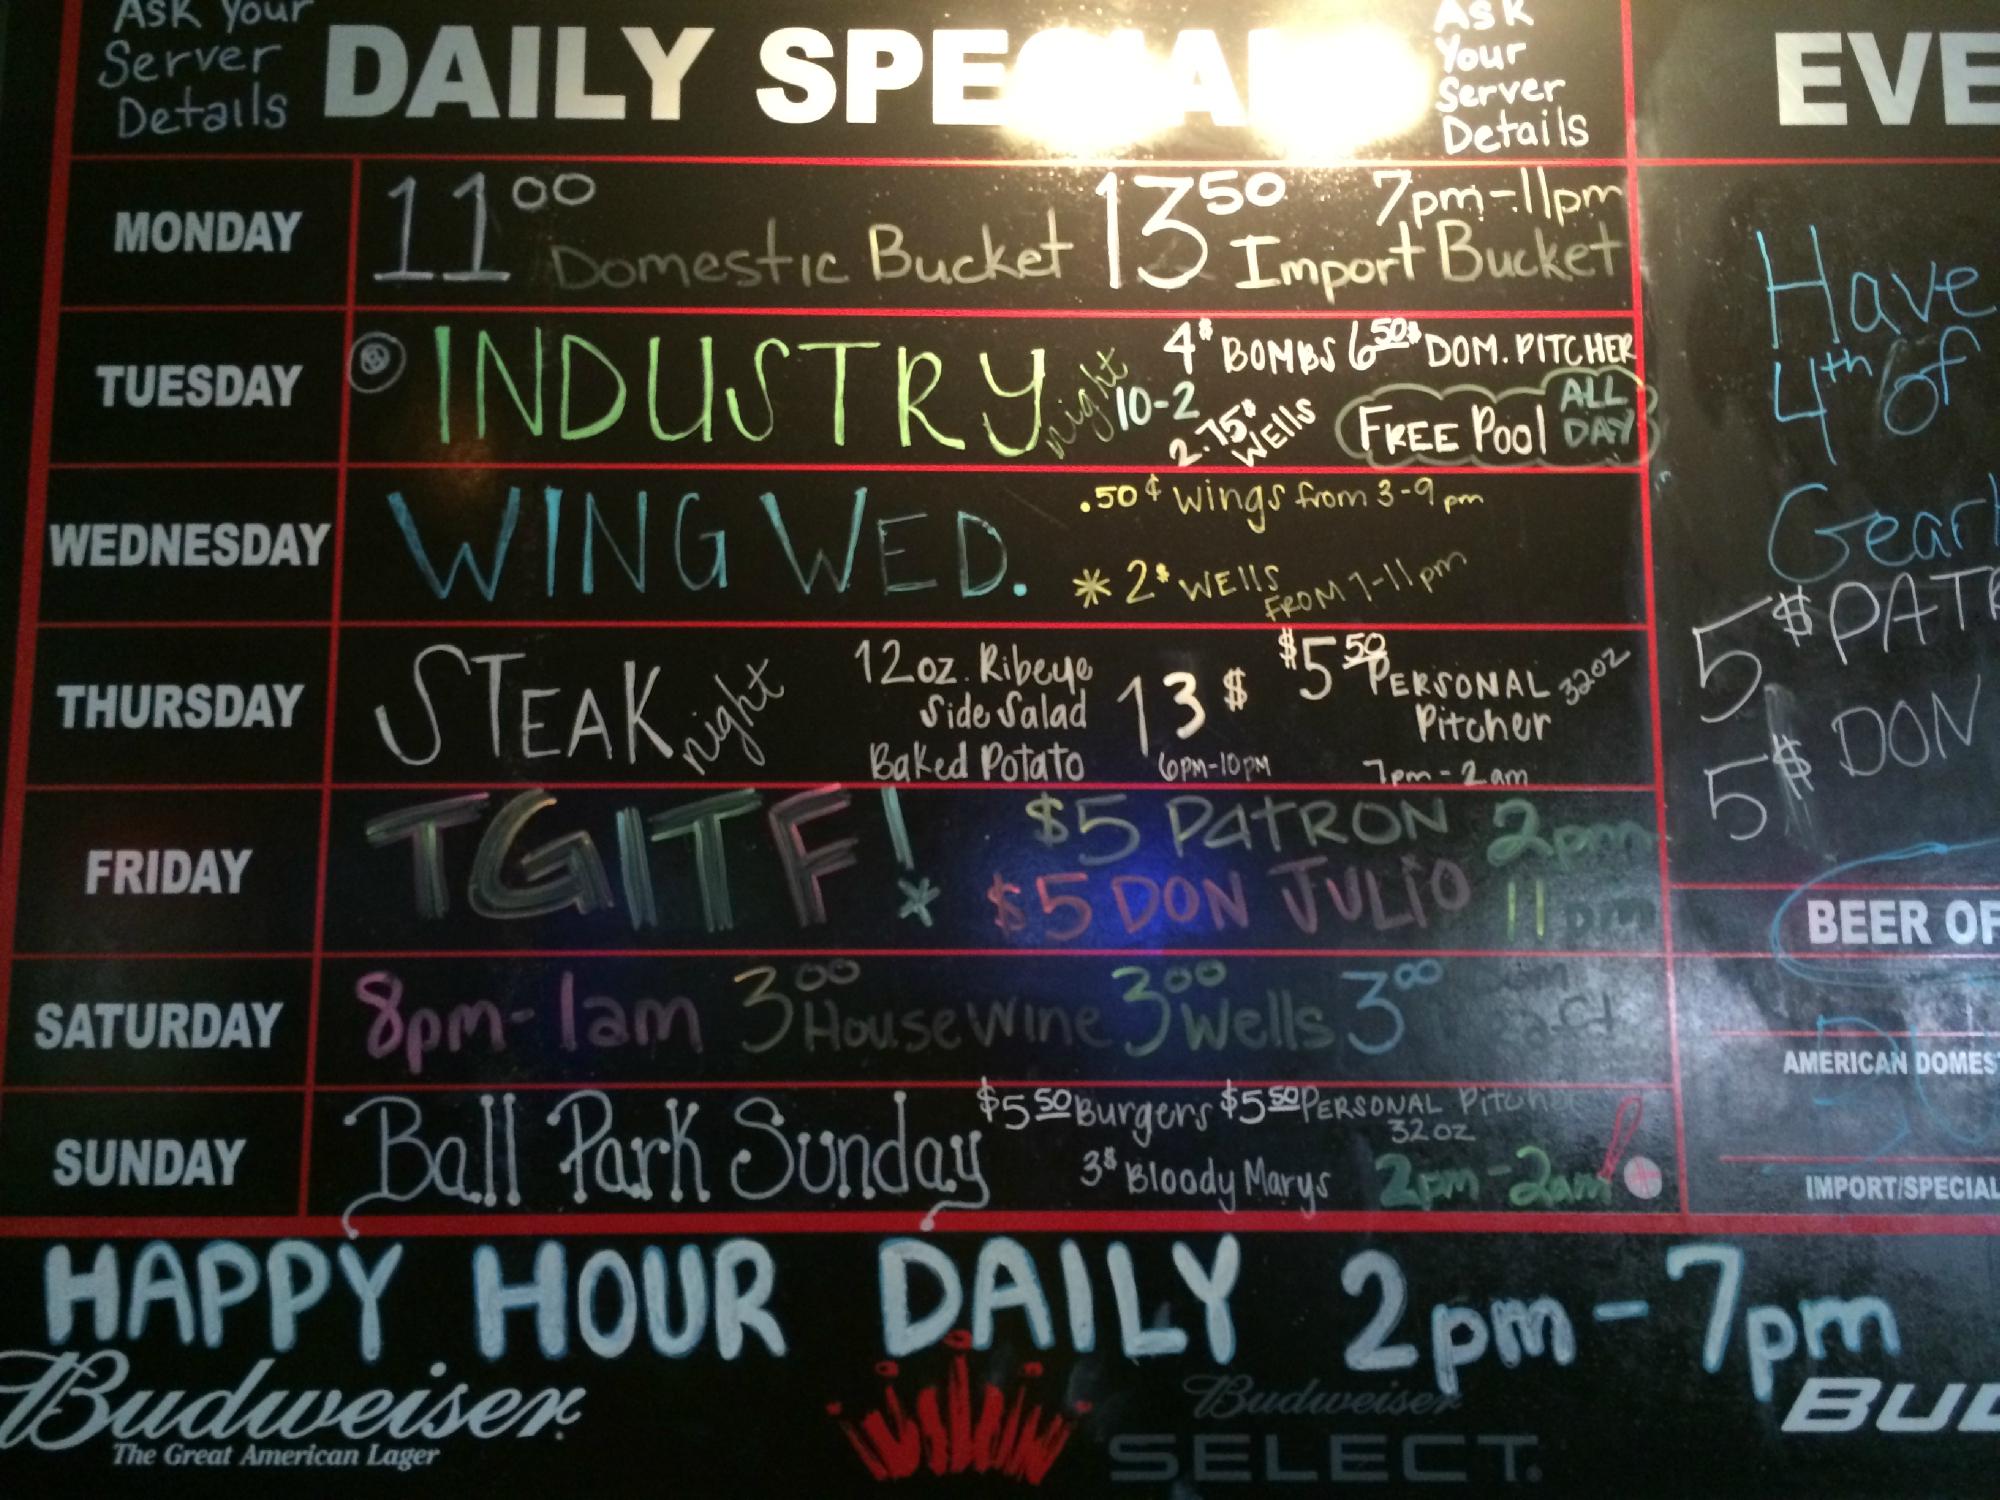 Ask Your
Server
Details
DAILY SPECIALS
Ask
Your
Server
Details
EVE
MONDAY
11 00 Domestic Bucket
13 50 Import Bucket
7pm-11pm
TUESDAY
8
INDUSTRY night
10-2
4$ BOMBS 6 50$ DOM. PITCHER
2.75$ WELLS
FREE Pool ALL DAY
WEDNESDAY
WING WED.
.50¢ Wings from 3-9pm
* 2$ WEllS FROM 7-11pm
THURSDAY
STEAK night
12oz. Ribeye
Side Salad
Baked Potato
13$
6PM-10PM
$5 50 PERSONAL Pitcher 32oz
7pm-2am
FRIDAY
TGITF!
*
$5 PATRON
$5 DON JULIO
2pm
11pm
SATURDAY
8pm-1am 3 00 House Wine 3 00 Wells 3 00
SUNDAY
Ball Park Sunday
$5 50 Burgers $5 50 PERSONAL Pitcher
32oz
3$ Bloody Marys
2pm-2am
Have
4th of
Gear
5$ PATR
5$ DON
BEER OF
AMERICAN DOMES
IMPORT/SPECIAL
HAPPY HOUR DAILY 2pm-7pm
Budweiser
The Great American Lager
Budweiser
SELECT
BUD